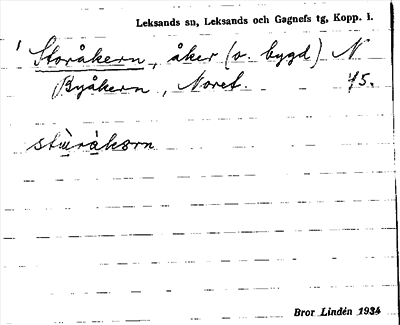 Leksands sn, Leksands och Gagnefs tg, Kopp. l.
Storåkern, åker (o. bygd) N
Byåkern, Noret. 45.
Bror Lindén 1934